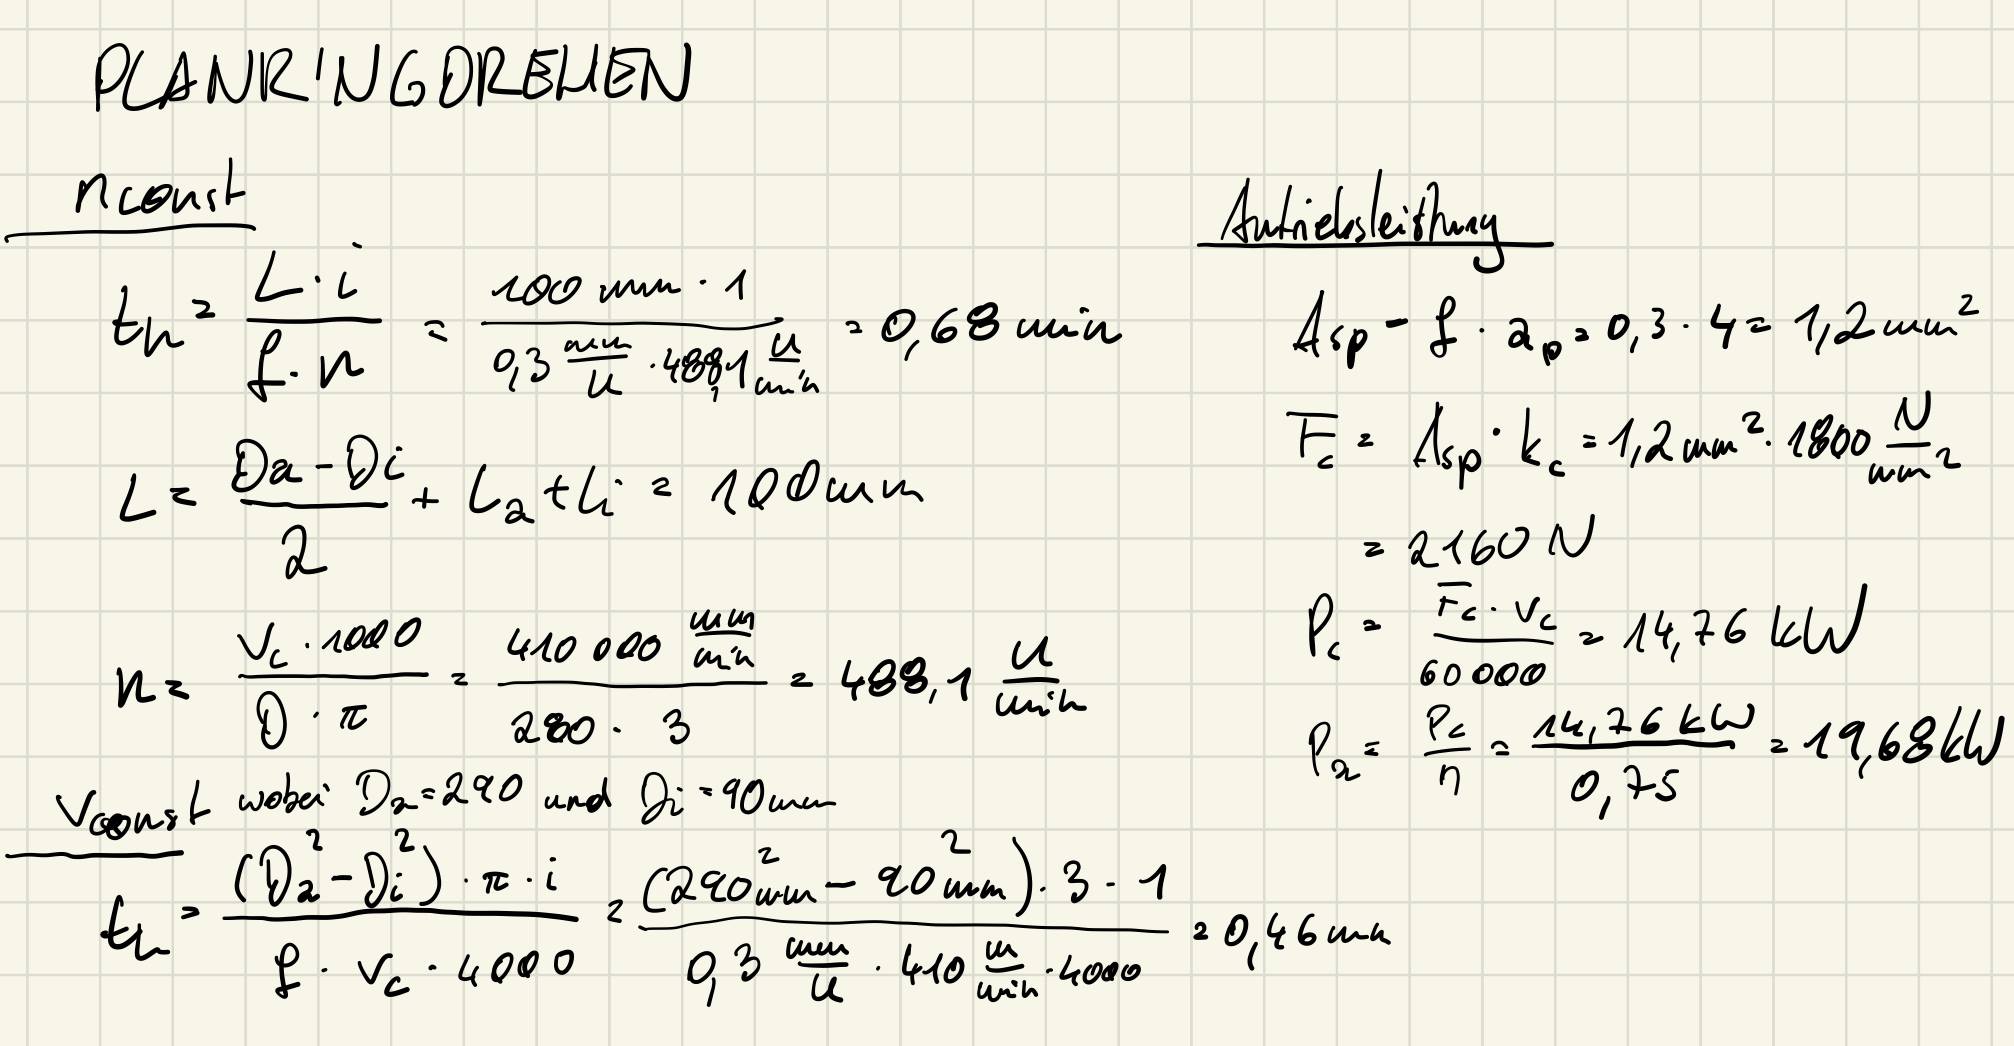 PLANRINGDREHEN
nconst
th = L · i / f · n = 100 mm · 1 / 0,3 mm/U · 488,1 U/min = 0,68 min
L = Da - Di / 2 + La + li = 100mm
n = Vc · 1000 / D · π = 410 000 mm/min / 280 · 3 = 488,1 U/min
Vconst wobei Da = 290 und Di = 90mm
th = (Da² - Di²) · π · i / f · Vc · 4000 = (290mm² - 90mm²) · 3 · 1 / 0,3 mm/U · 410 m/min · 4000 = 0,46 min
Antriebsleistung
Asp = f · ap = 0,3 · 4 = 1,2mm²
Fc = Asp · kc = 1,2mm² · 1800 N/mm²
= 2160 N
Pc = Fc · Vc / 60 000 = 14,76 kW
Pa = Pc / η = 14,76 kW / 0,75 = 19,68kW